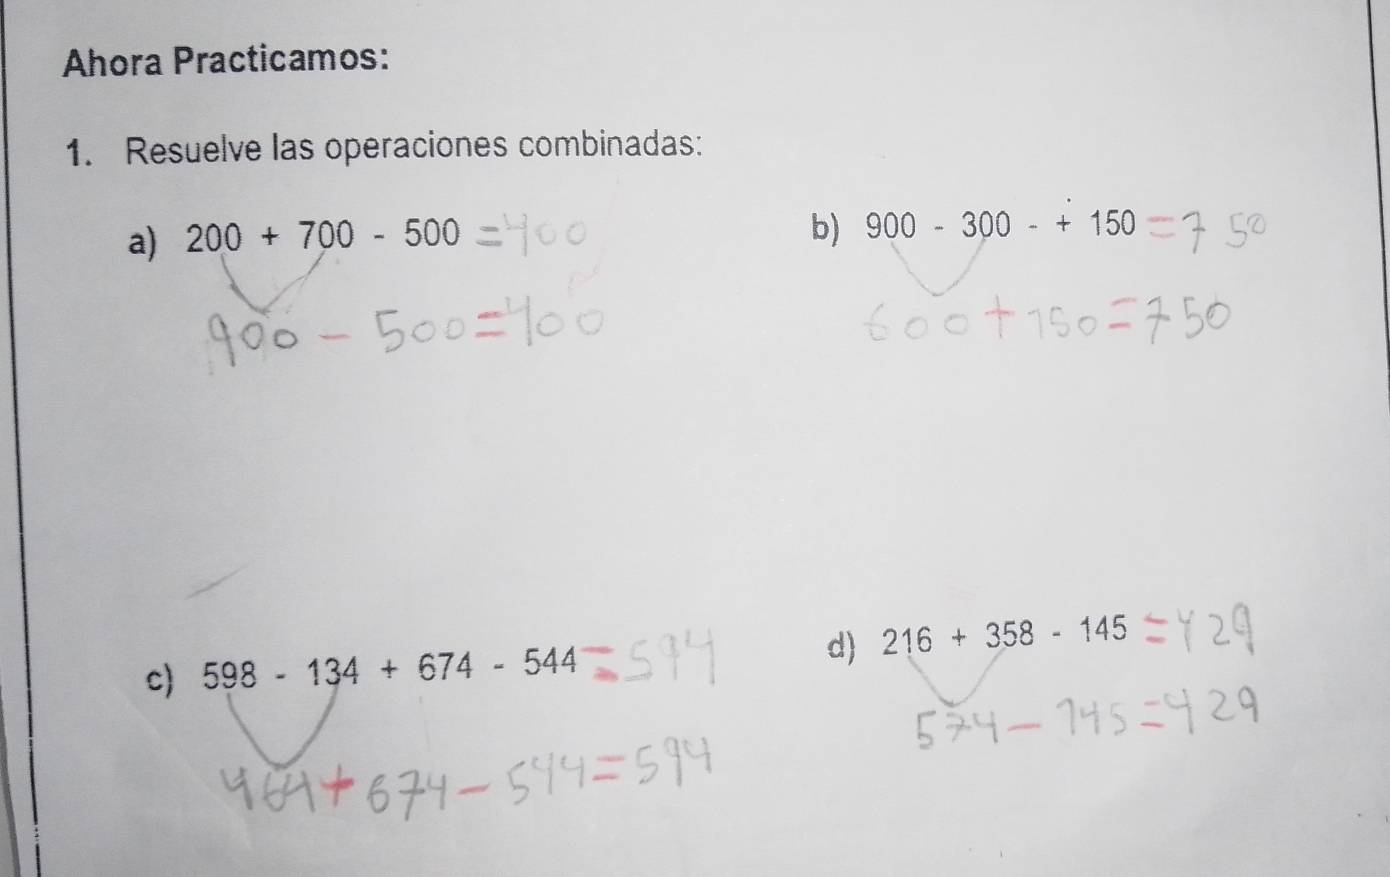 Ahora Practicamos:
1. Resuelve las operaciones combinadas:
a) 200 + 700 - 500 = 400
900 - 500 = 400
b) 900 - 300 - + 150 = 750
600 + 150 = 750
c) 598 - 134 + 674 - 544 = 594
464 + 674 - 544 = 594
d) 216 + 358 - 145 = 429
574 - 145 = 429